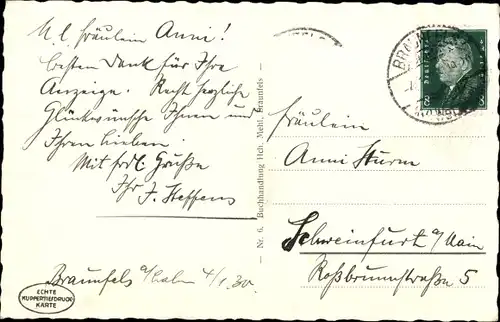 M. l. Fräulein Anni!
besten Dank für Ihre
Anzeige. Recht herzliche
Glückwünsche Ihnen und
Ihren Lieben.
Mit frdl. Grüße
Ihr J. Steffens
Braunfels a/Lahn 4/1.30.
ECHTE
KUPFERTIEFDRUCK
KARTE
Nr. 6. Buchhandlung Hch. Mehl, Braunfels
BRAUNFELS
DEUTSCHES REICH
8 8
Fräulein
Anni Sturm
Schweinfurt a/Main
Roßbrunnstraße 5